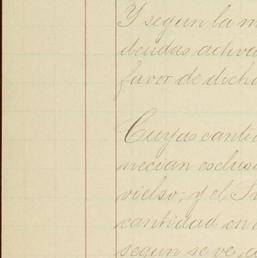 Y segun la m
deudas activa
favor de dicho
Cuyas cantid
necian esclus
vielso; y el Sr
cantidad en
segun se ve, a